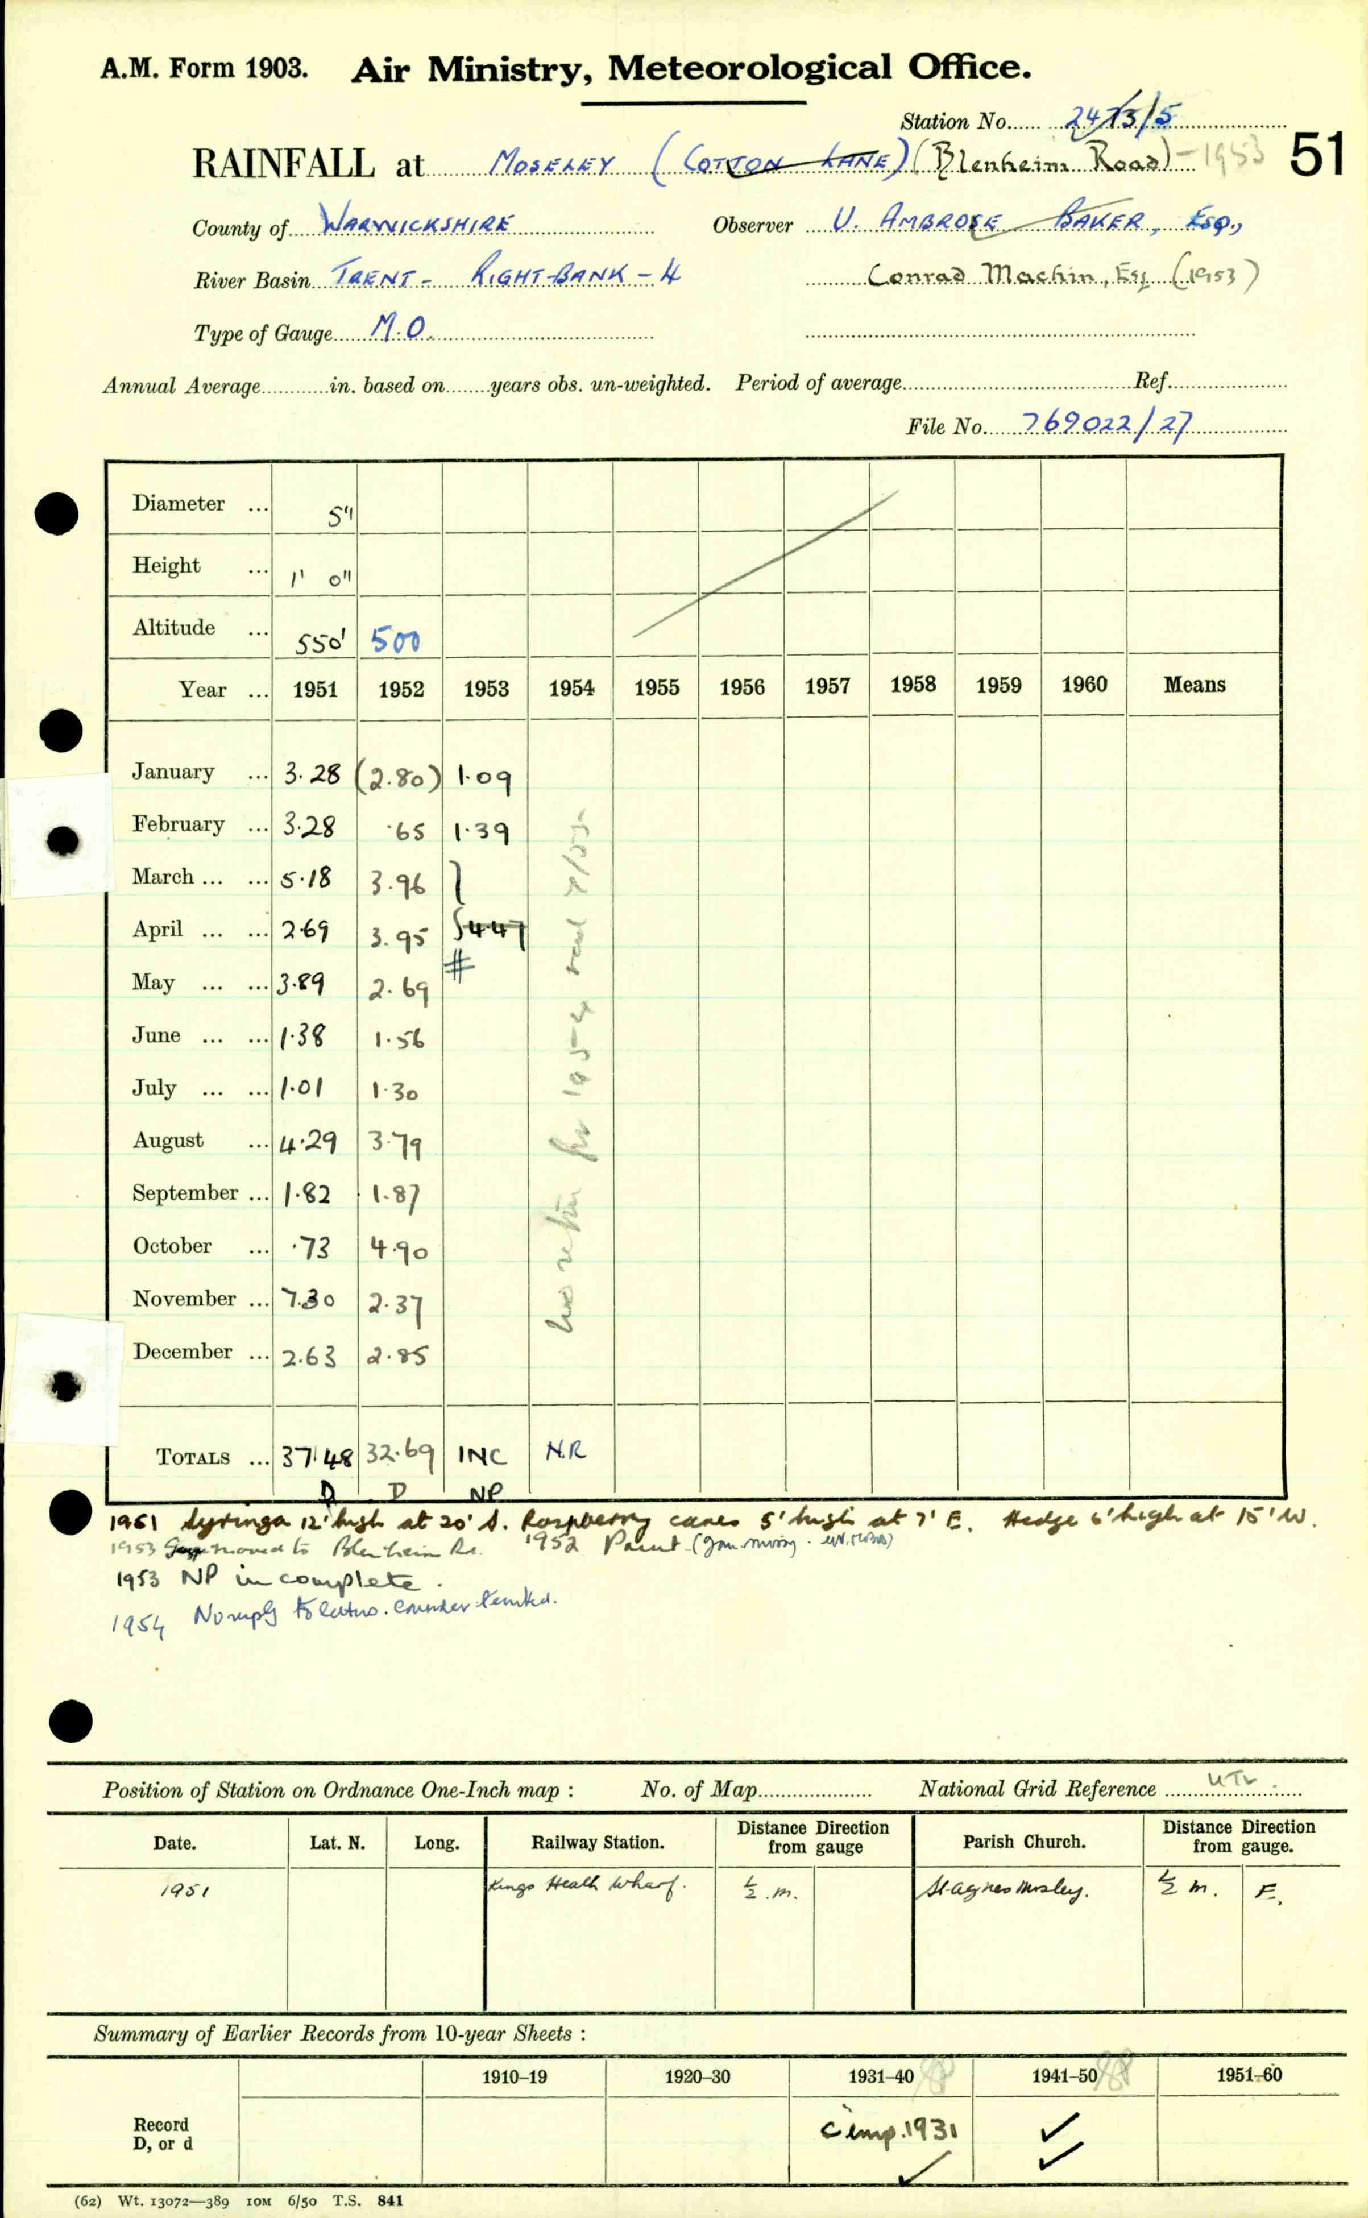 A.M. Form 1903. Air Ministry, Meteorological Office.
Station No...... 2473/5
RAINFALL at MOSELEY (COTTON LANE) (Blenheim Road) - 1953 51
County of WARWICKSHIRE Observer U. AMBROSE BAKER, ESQ.,
River Basin TRENT - RIGHT-BANK - 4 Conrad Machin, Esq (1953)
Type of Gauge M.O.
Annual Average............in. based on........years obs. un-weighted. Period of average.................... Ref....................
File No. 769022/27
Diameter ... 5"
Height ... 1' 0"
Altitude ... 550' 500
Year ... 1951 1952 1953 1954 1955 1956 1957 1958 1959 1960 Means
January ... 3.28 (2.80) 1.09
February ... 3.28 .65 1.39
March ... ... 5.18 3.96 }
April ... ... 2.69 3.95 4.47
May ... ... 3.89 2.69 #
June ... ... 1.38 1.56
July ... ... 1.01 1.30
August ... 4.29 3.79
September ... 1.82 1.87
October ... .73 4.90
November ... 7.30 2.37
December ... 2.63 2.85
for 1954
TOTALS ... 37.48 32.69 INC N.R
D D NP
1951 Syringa 12' high at 20' S. Raspberry canes 5' high at 7' E. Hedge 6' high at 15' W.
1953 moved to Blenheim Rd. 1952 (Jan missing.
1953 NP incomplete.
1954 No reply to letters. Consider
Position of Station on Ordnance One-Inch map : No. of Map.................... National Grid Reference
Date. Lat. N. Long. Railway Station. Distance from Direction gauge Parish Church. Distance from Direction gauge.
1951 Kings Heath Wharf. ½ m. St Agnes Mosley. ½ m. E.
Summary of Earlier Records from 10-year Sheets :
1910–19 1920–30 1931–40 1941–50 1951–60
Record
D, or d
1931 ✓
✓ ✓
(62) Wt. 13072—389 10M 6/50 T.S. 841